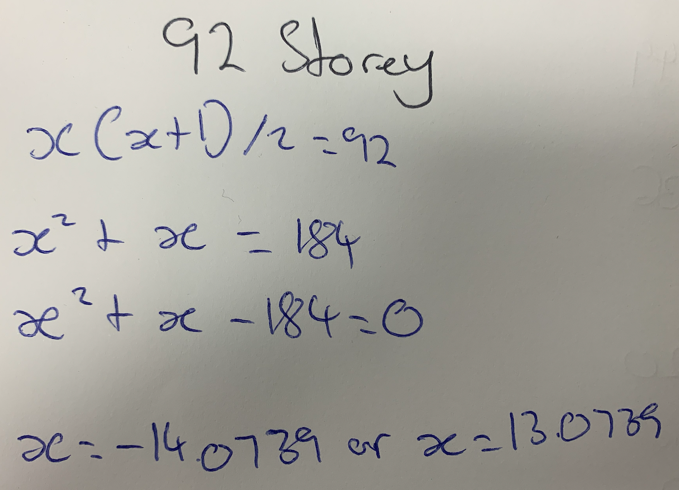 92 Storey
x(x+1)/2=92
x² + x = 184
x² + x - 184 = 0
x = -14.0739 or x = 13.0739